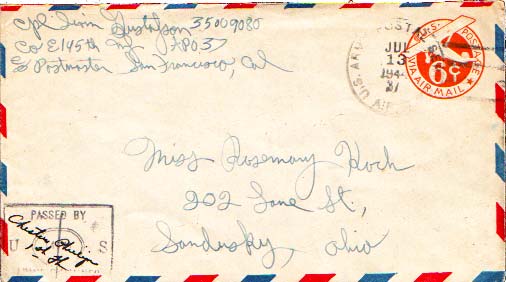 Cpl Gustafson 35009080
Co E 145th Inf APO 37
℅ Postmaster San Francisco, Cal
U.S. ARMY POST
JUL
13
194
U.S. POSTAGE
6¢
VIA AIR MAIL
Miss Rosemary Koch
202 Lane St,
Sandusky, Ohio
PASSED BY
U S
1st Lt